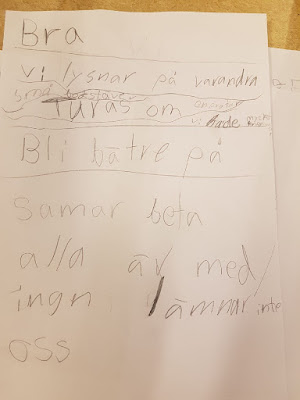 Bra
vi lysnar på varandra
Turas om
Bli bätre på
Samar beta
alla är med/
ingn lämnar inte
oss